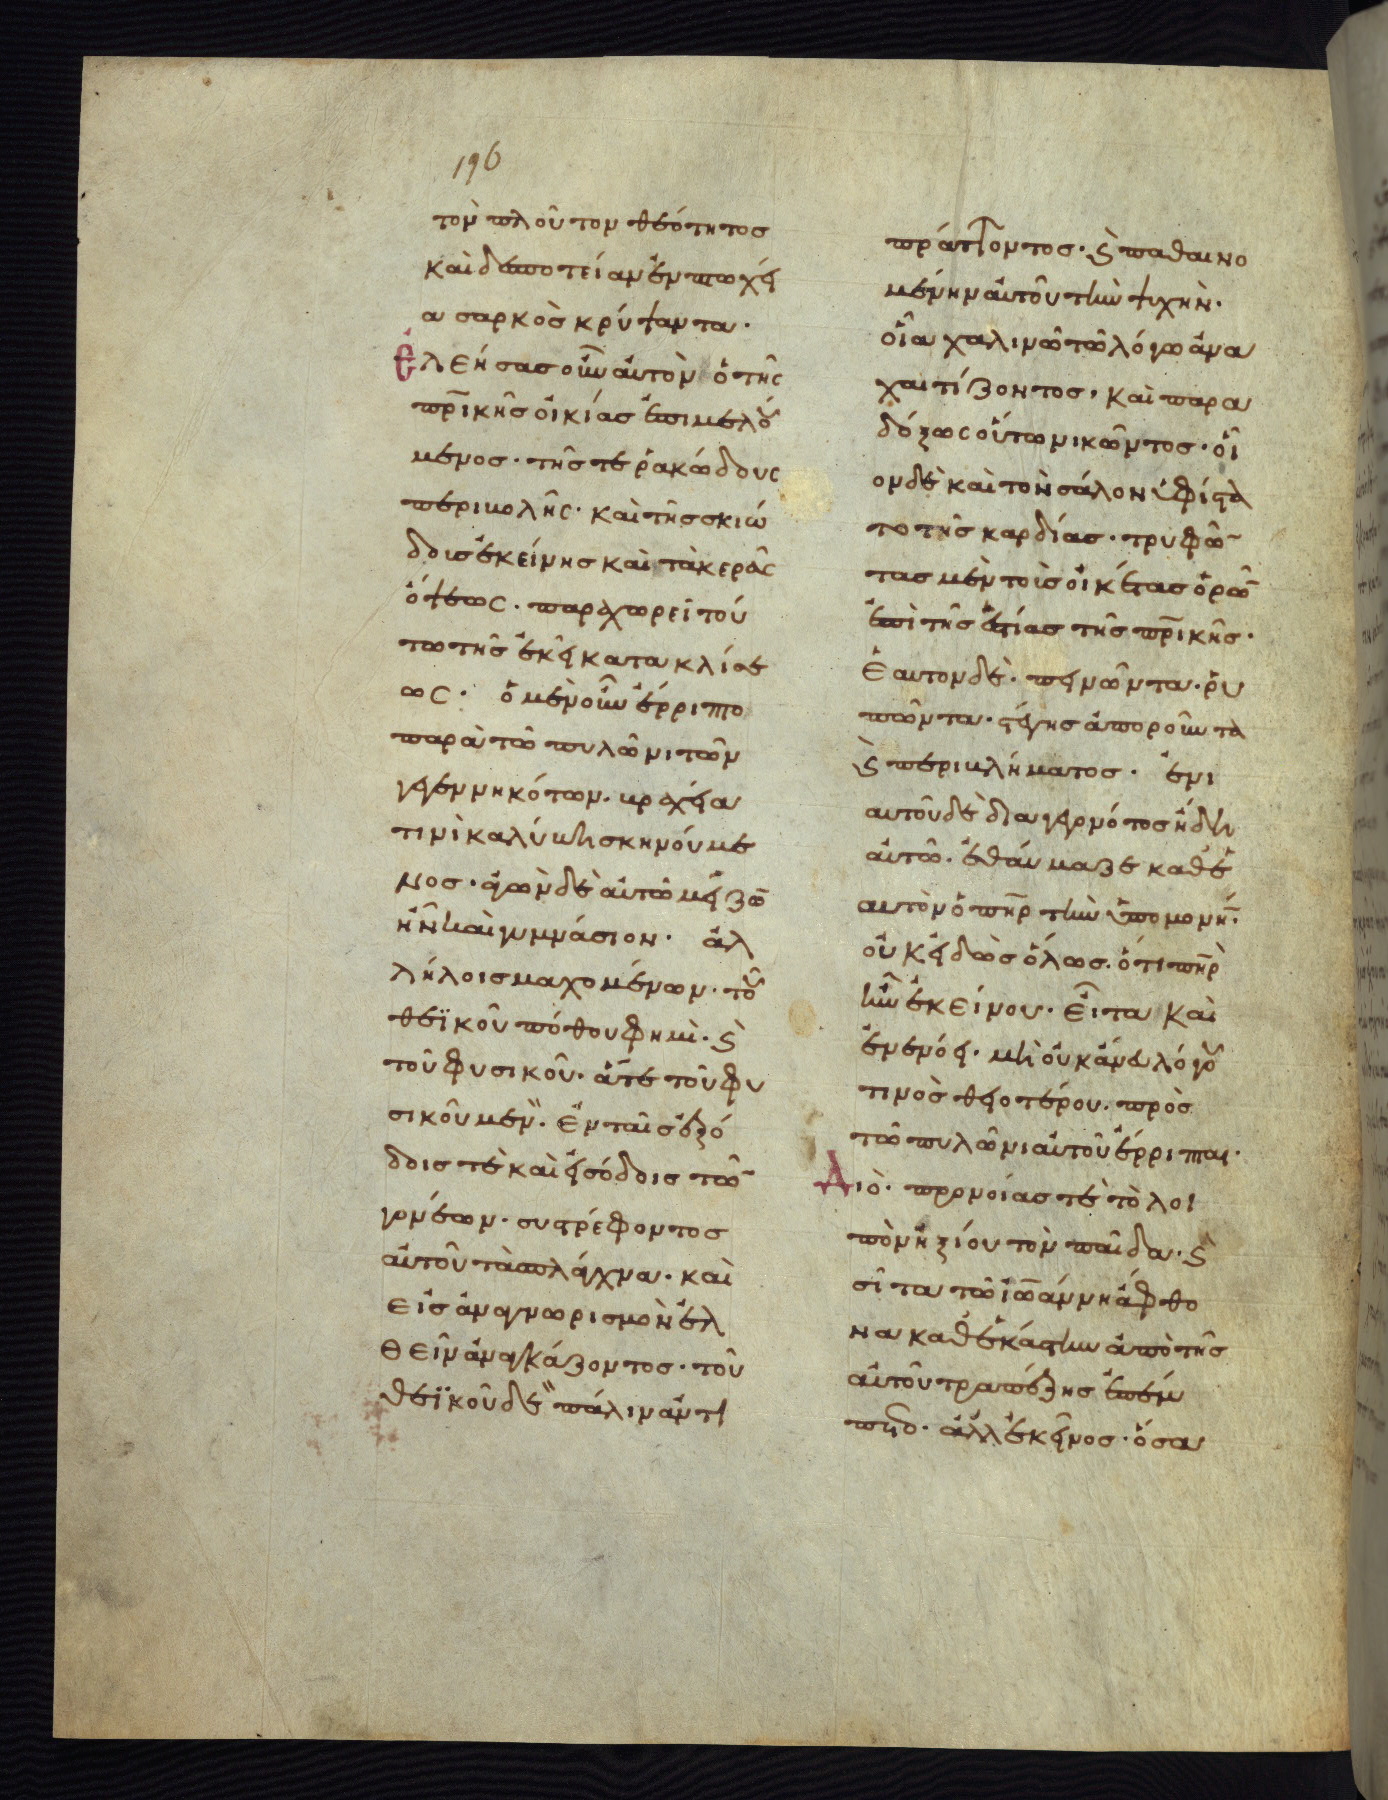 196
τὸν πλοῦτον θεότητος
καὶ δεσποτείαν ἐν πτωχεί
α σαρκὸς κρύψαντα·
ἐλεήσας οὖν αὐτὸν ὁ τῆς
πρικῆς οἰκίας ἐπιμελού
μενος· τῆς τε ῥακώδους
περιβολῆς· καὶ τῆς σκιώ
δοις ἐκείνης καὶ τακερᾶς
ὄψεως· παραχωρεῖ τού
τω τῆς ἐκεῖ κατακλίσε
ως· ὁ μὲν οὖν ἔρριπτο
παρὰ τῶ πυλῶνι τῶν
γεγεννηκότων· βραχεία
τινὶ καλύβη σκηνούμε
νος· ἀγὼν δὲ αὐτῶ μείζω
ἦν καὶ γυμνάσιον· ἀλ
λήλοις μαχομένων· τοῦ
θεϊκοῦ πόθου φημὶ· κ
τοῦ φυσικοῦ· ἅτε τοῦ φυ
σικοῦ μὲν· ἐν ταῖς ἐξό
δοις τὲ καὶ εἰσόδοις τῶ
γονέων· συστρέφοντος
αὐτοῦ τὰ σπλάγχνα· καὶ
εἰς ἀναγνωρισμὸν ἐλ
θεῖν ἀναγκάζοντος· τοῦ
θεϊκοῦ δὲ πάλιν ἀντι
πράττοντος· κ παθαινο
μένην αὐτοῦ τὴν ψυχὴν·
οἷα χαλινῶ τῶ λόγω ἀνα
χαιτίζοντος· καὶ παρα
δόξως οὕτω νικῶντος· οἷ
ον δὲ καὶ τὸν σάλον ὑφίστα
το τῆς καρδίας· τρυφῶ
τας μὲν τοὺς οἰκέτας ὁρῶ
ἐπὶ τῆς ἑστίας τῆς πρικῆς·
ἑαυτον δὲ· πεινῶντα· ῥυ
πῶντα· στέγης ἀποροῦντα
κ περιβλήματος· ἐνι
αυτοῦ δὲ διαγεγονότος ἤδη
αὐτῶ· ἐθαύμαζε καθ' ἑ
αυτὸν ὁ πηρ τὴν ὑπομονή·
οὐκ εἰδὼς ὅλως· ὅτι πηρ
ἦν ἐκείνου· εἶτα καὶ
ἐνενόει· μὴ οὐκ ἄνευ λόγου
τινὸς θειοτέρου· πρὸς
τῶ πυλῶνι αὐτοῦ ἔρριπται·
Διὸ· προνοίας τὲ τὸ λοι
πὸν ἠξίου τὸν παῖδα· κ
σῖτα τῶ ἰωάννη ἄφθο
να καθ' ἑκάστην ἀπὸ τῆς
αὐτοῦ τραπέζης ἐπεμ
πεν· ἀλλ' ἐκεῖνος· ὅσα